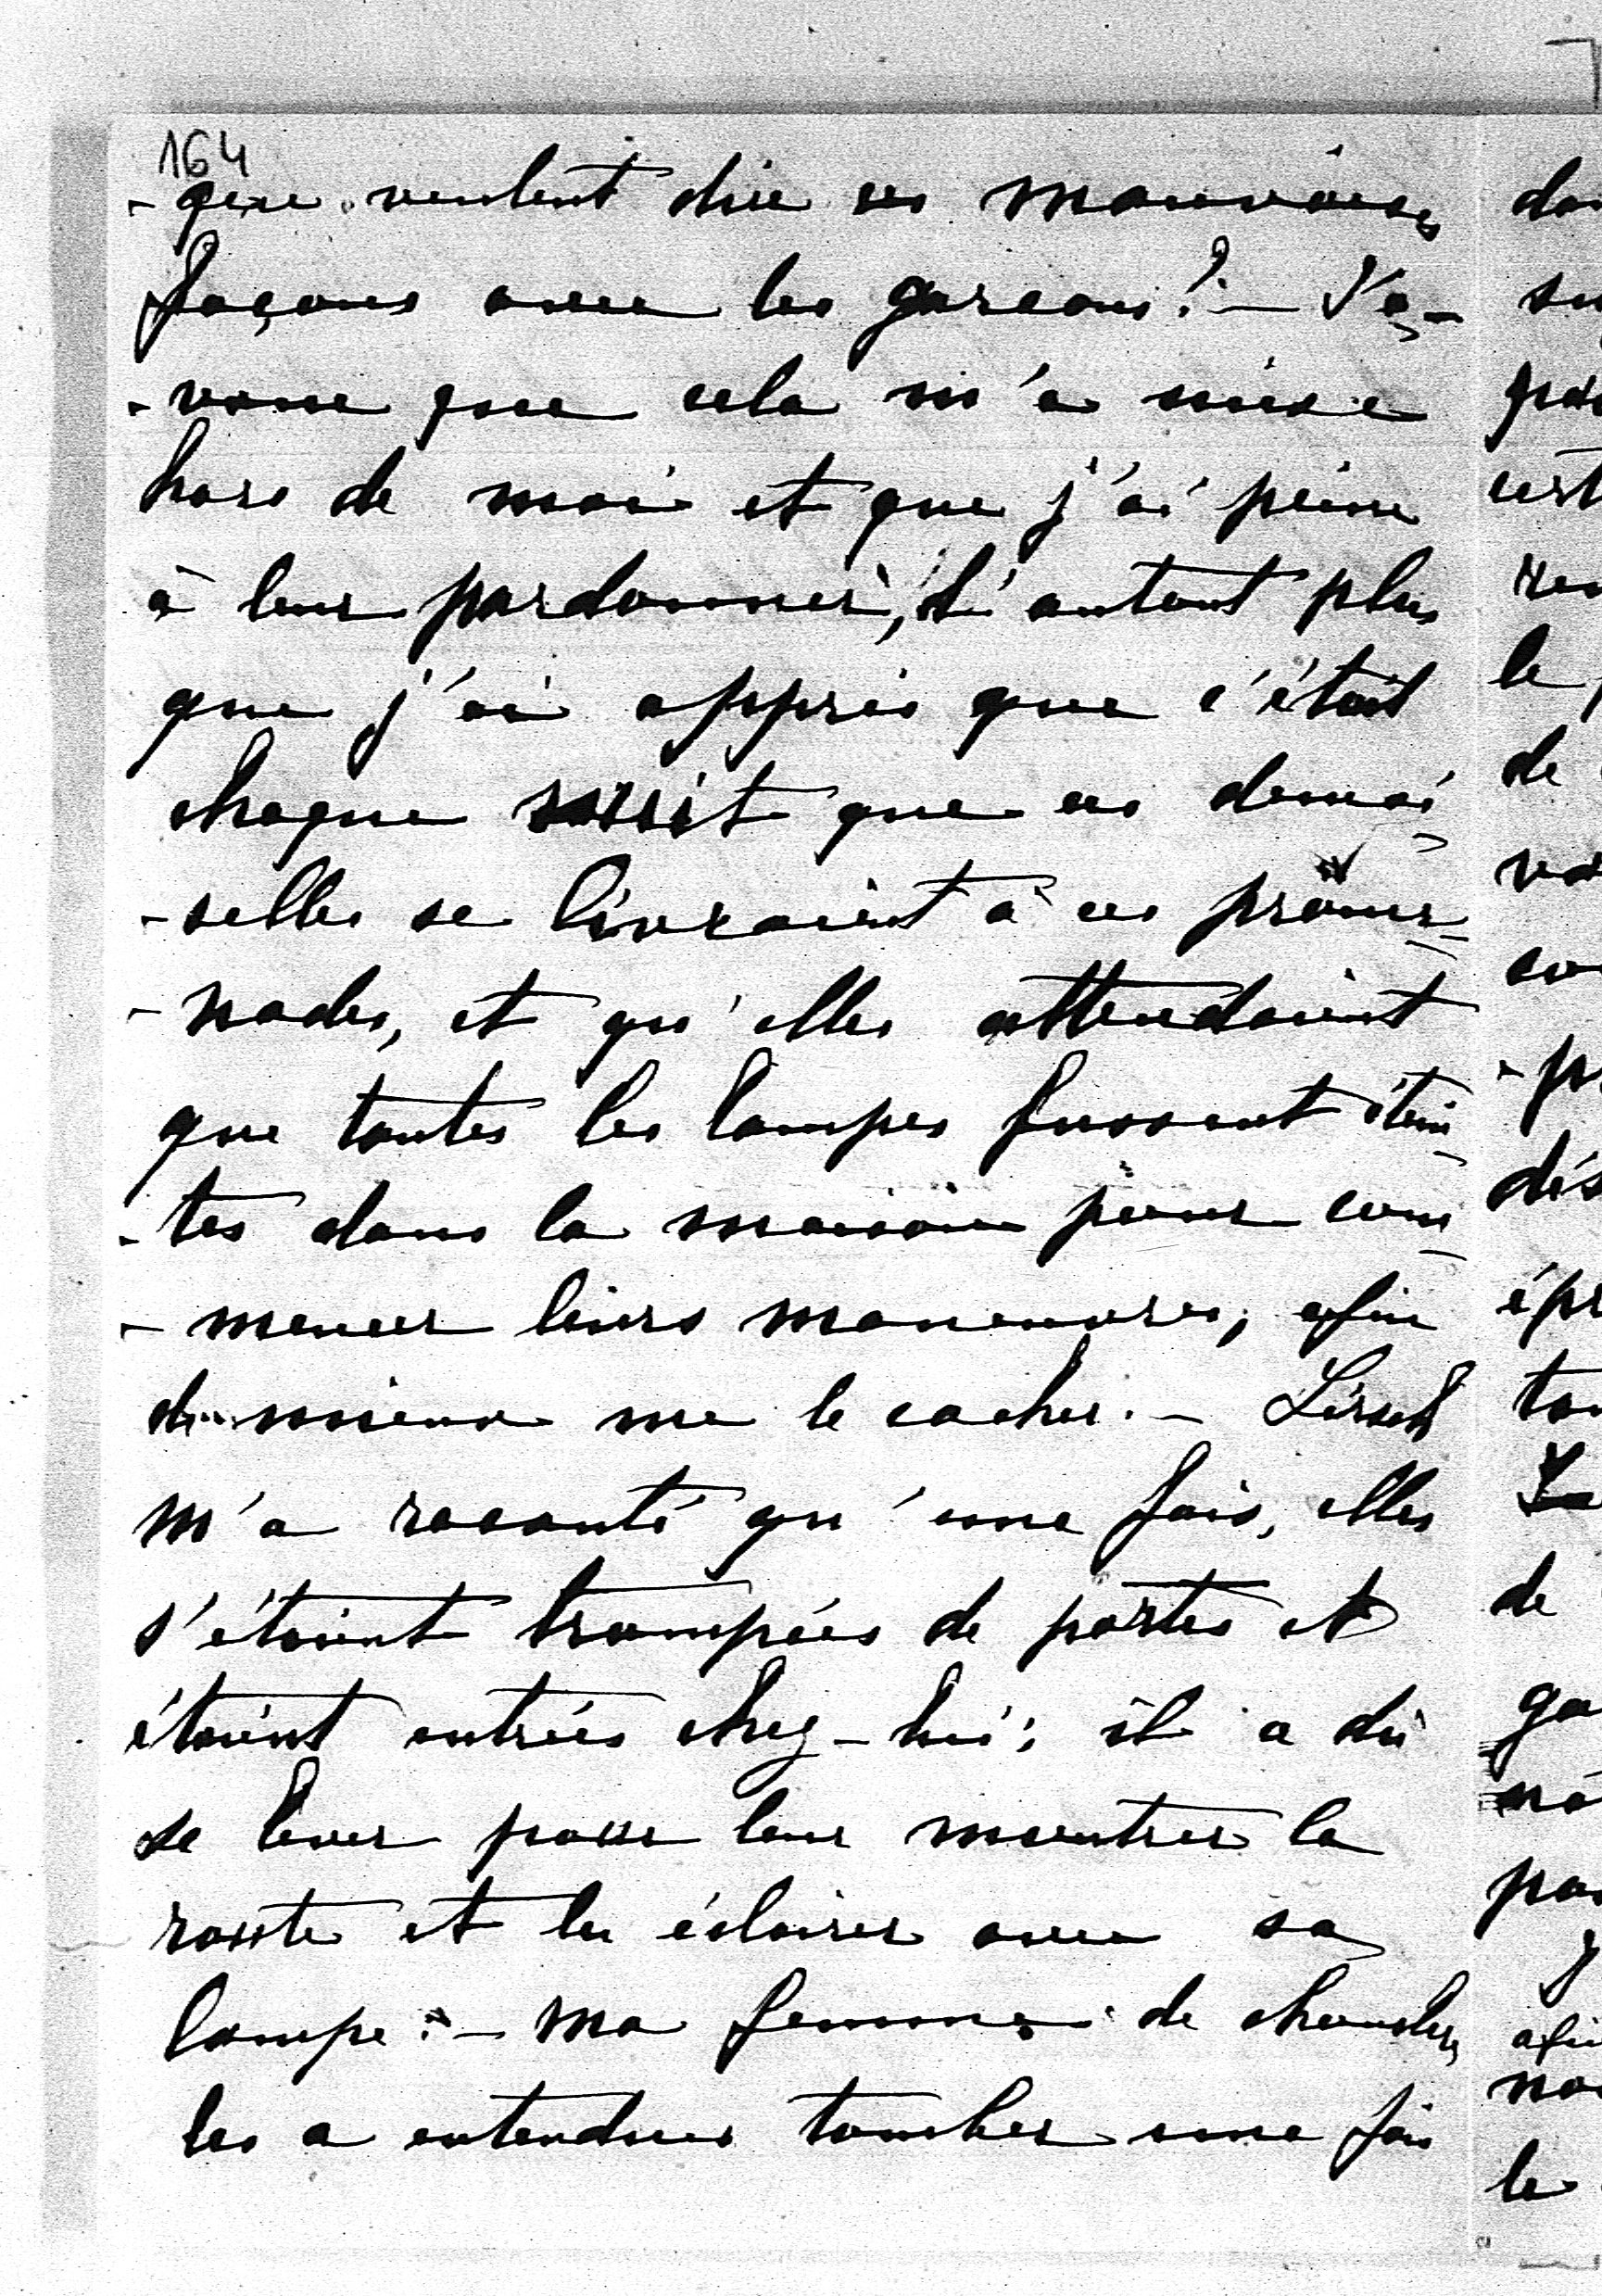 164
- que veulent dire ces mauvaises
façons avec les garçons? - J'a-
- voue que cela m'a mise
hors de moi et que j'ai peine
à leur pardonner, d'autant plus
que j'ai appris que c'était
chaque nuit que ces demoi-
- selles se livraient à ces prome-
- nades, et qu'elles attendaient
que toutes les lampes fussent étein-
- tes dans la maison pour com-
- mencer leurs manœuvres, afin
de mieux me le cacher. -
m'a raconté qu'une fois, elles
s'étaient trompées de portes et
étaient entrées chez-lui; il a dû
se lever pour leur montrer la
route et les éclairer avec sa
lampe. - Ma femme de chambre
les a entendues tomber une fois